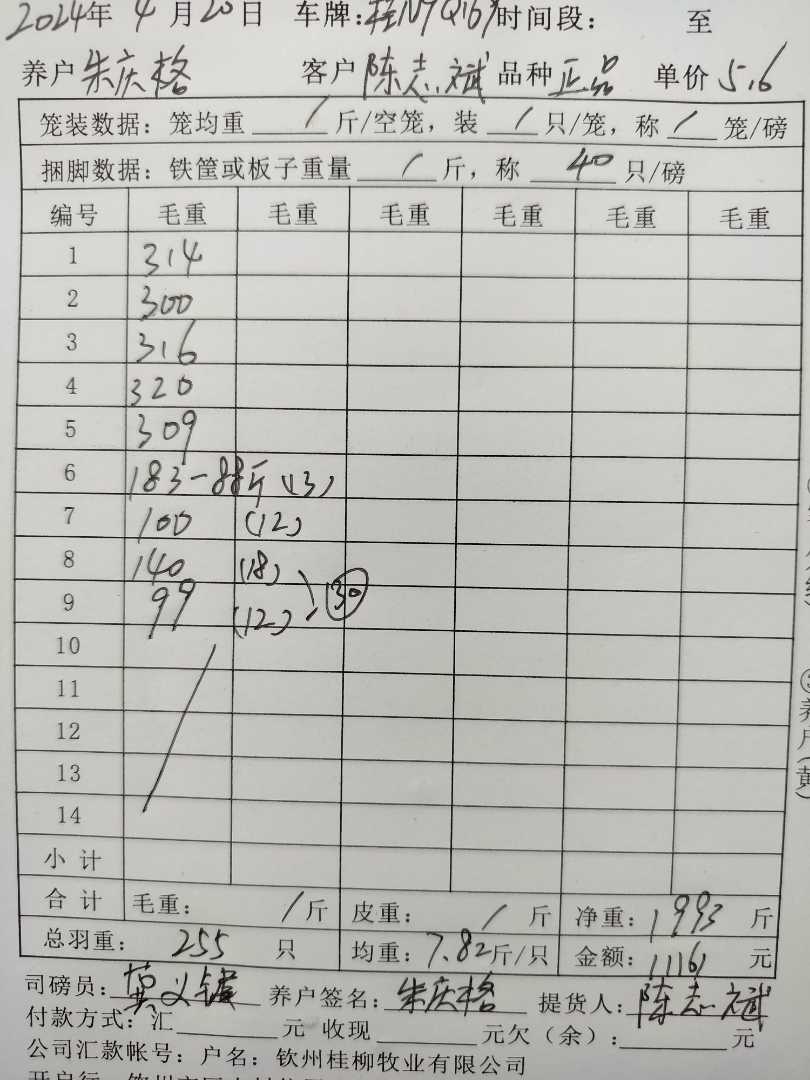 2024年 4 月 20 日 车牌: 时间段: 至
养户 朱庆格 客户 陈志斌 品种 正品 单价 5.6
笼装数据: 笼均重 / 斤/空笼, 装 / 只/笼, 称 / 笼/磅
捆脚数据: 铁筐或板子重量 / 斤, 称 40 只/磅
编号 毛重 毛重 毛重 毛重 毛重 毛重
1 314
2 300
3 316
4 320
5 309
6 183-88斤 (13)
7 100 (12)
8 140 (18)
9 99 (12) 30
10
11
12
13
14
小计
合计 毛重: / 斤 皮重: / 斤 净重: 1993 斤
总羽重: 255 只 均重: 7.82 斤/只 金额: 11161 元
司磅员: 养户签名: 朱庆格 提货人: 陈志斌
付款方式: 汇 元 收现 元欠(余): 元
公司汇款帐号: 户名: 钦州桂柳牧业有限公司
养户(黄)